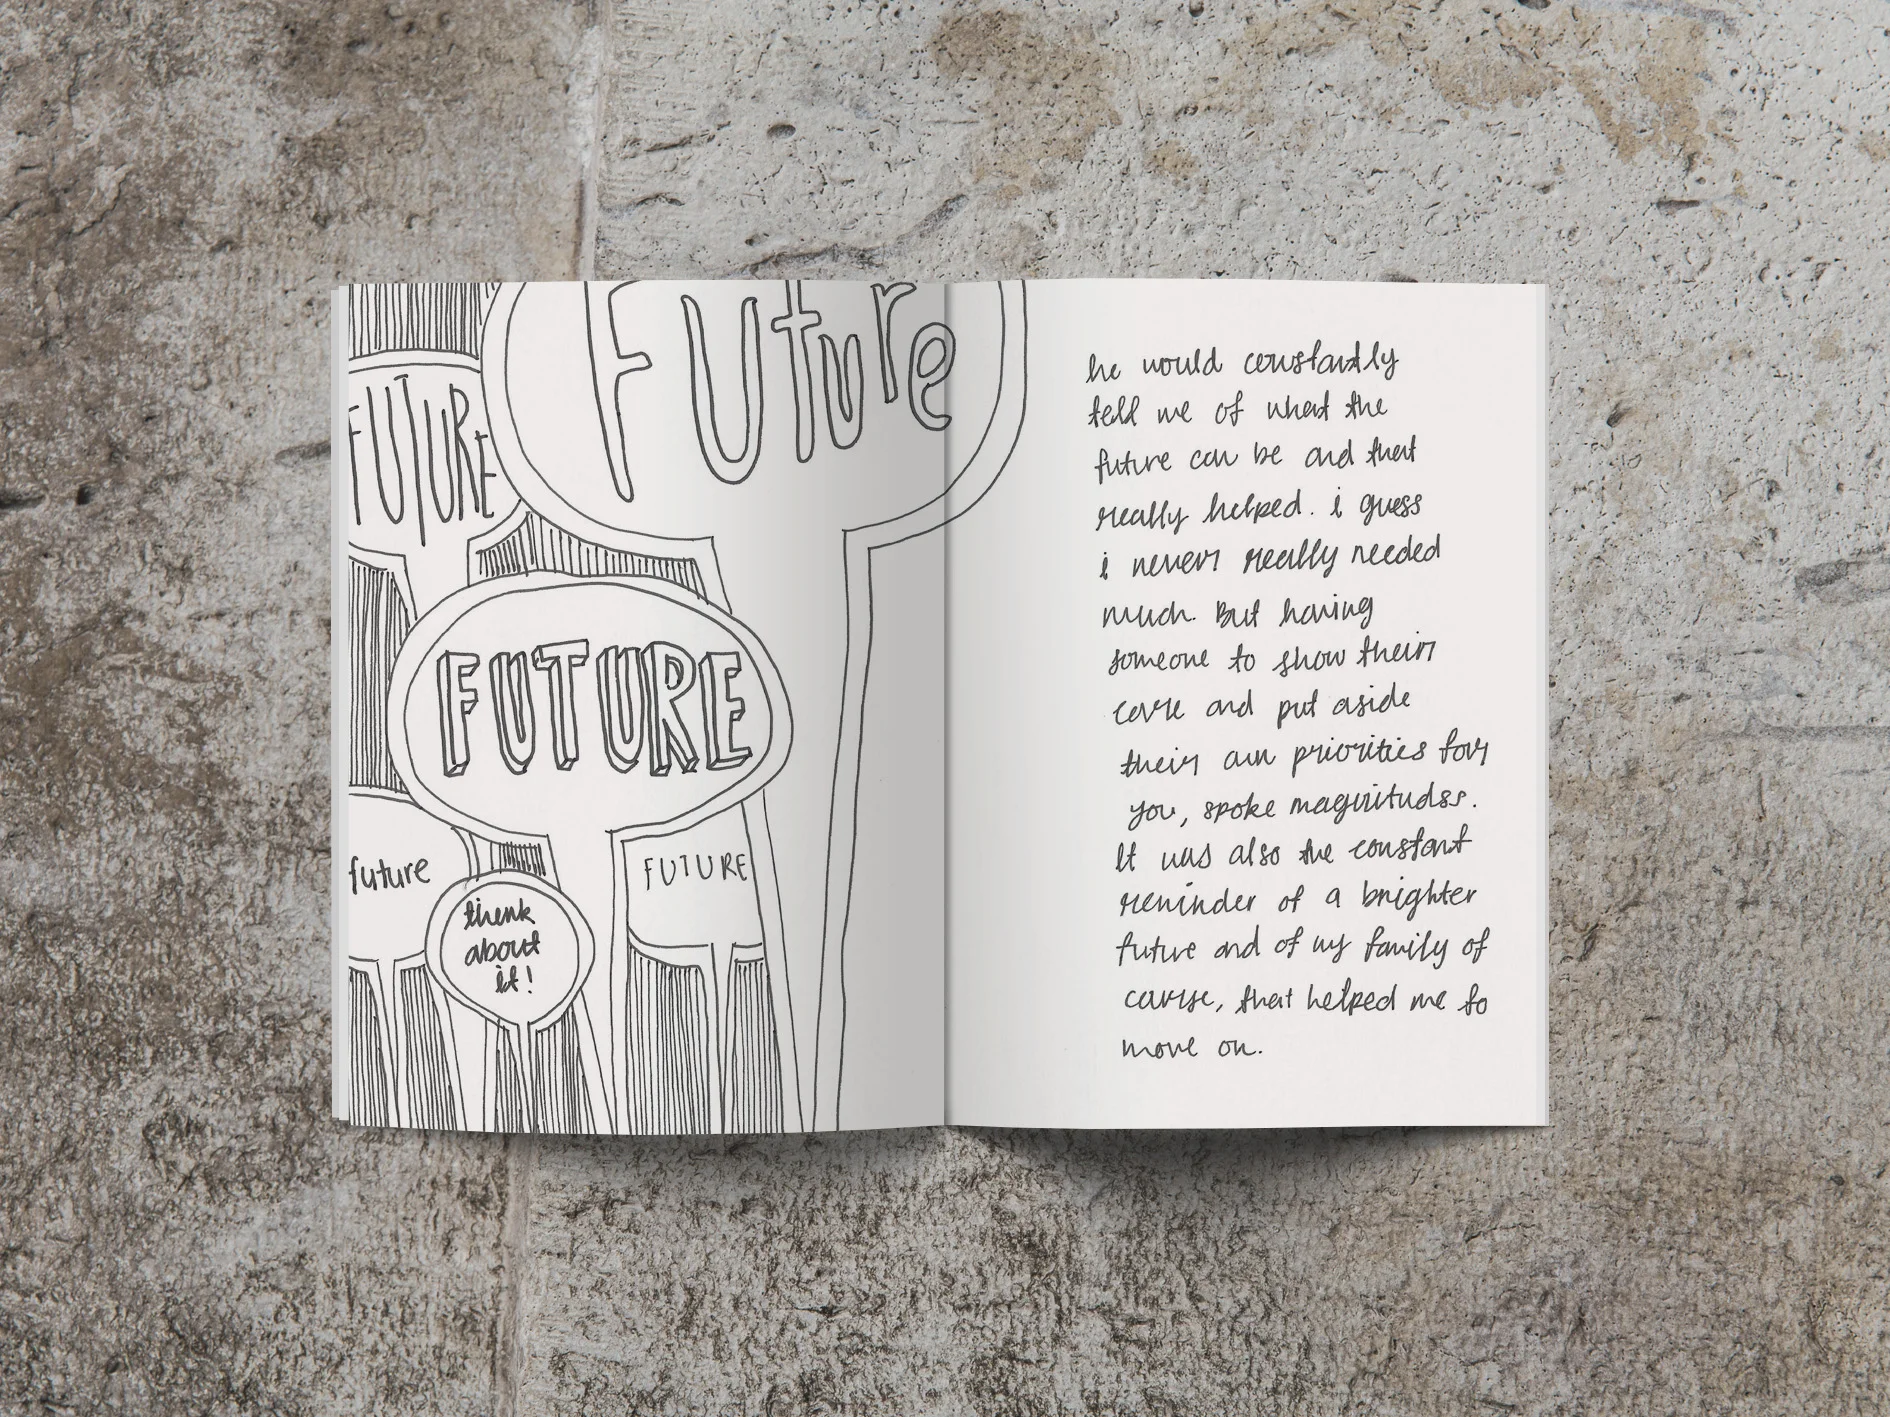 Future
FUTURE
FUTURE
future
FUTURE
think
about
it!
he would constantly
tell me of what the
future can be and that
really helped. i guess
i never really needed
much. But having
someone to show their
care and put aside
their own priorities for
you, spoke magnitudes.
It was also the constant
reminder of a brighter
future and of my family of
course, that helped me to
move on.